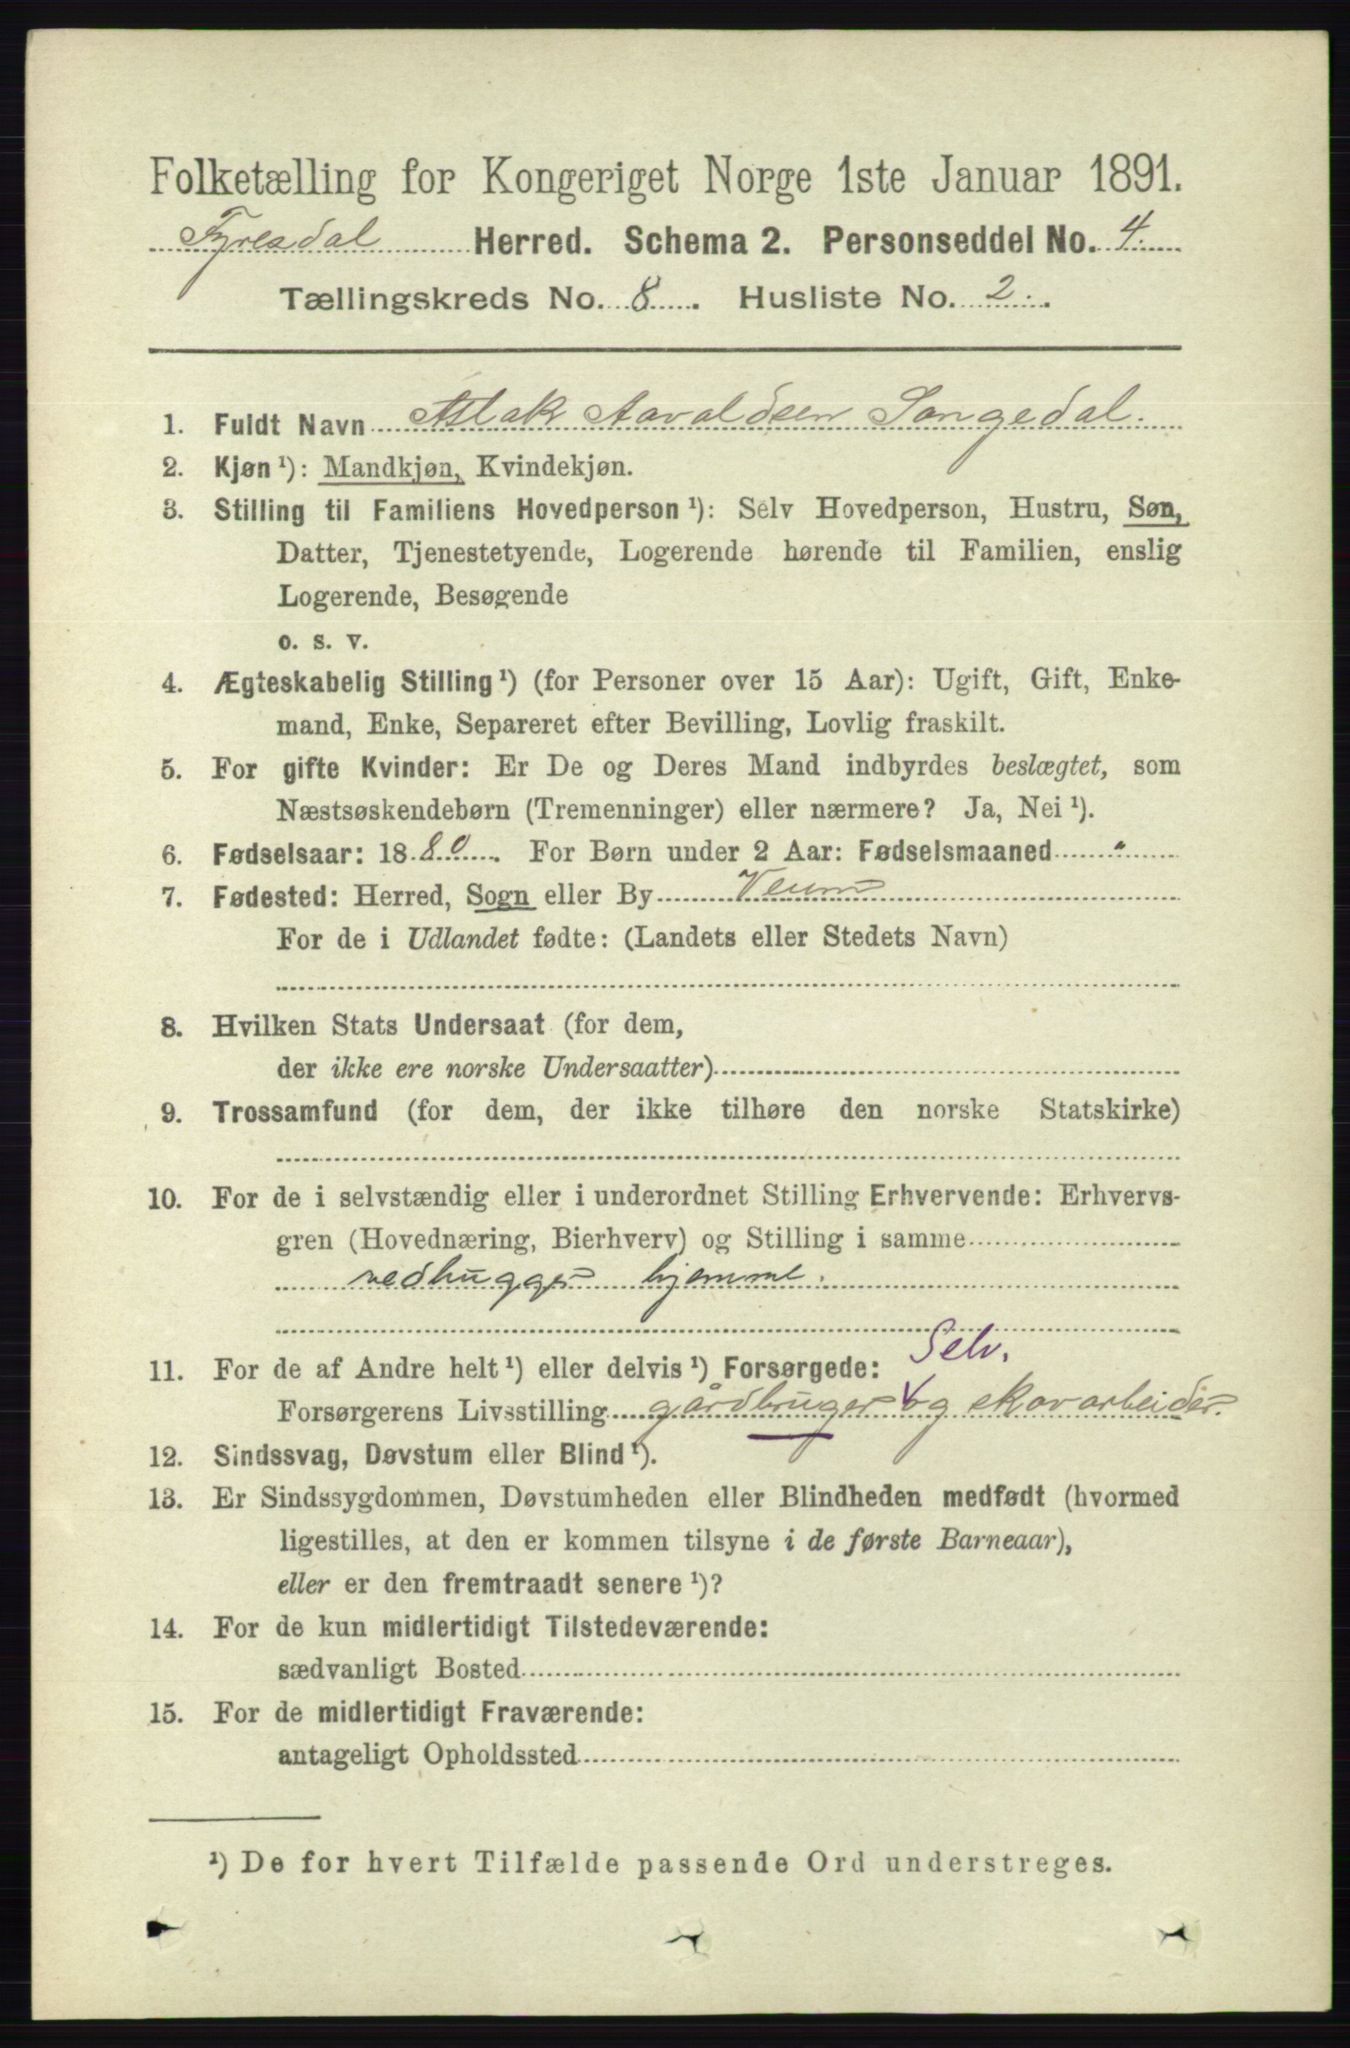 Folketælling for Kongeriget Norge 1ste Januar 1891.
Fyresdal Herred. Schema 2. Personseddel No. 4.
Tællingskreds No. 8. Husliste No. 2.
1. Fuldt Navn Aslak Aavaldsen Songedal.
2. Kjøn ¹): Mandkjøn, Kvindekjøn.
3. Stilling til Familiens Hovedperson ¹): Selv Hovedperson, Hustru, Søn,
Datter, Tjenestetyende, Logerende hørende til Familien, enslig
Logerende, Besøgende
o. s. v.
4. Ægteskabelig Stilling ¹) (for Personer over 15 Aar): Ugift, Gift, Enke-
mand, Enke, Separeret efter Bevilling, Lovlig fraskilt.
5. For gifte Kvinder: Er De og Deres Mand indbyrdes beslægtet, som
Næstsøskendebørn (Tremenninger) eller nærmere? Ja, Nei ¹).
6. Fødselsaar: 1880. For Børn under 2 Aar: Fødselsmaaned "
7. Fødested: Herred, Sogn eller By Veum
For de i Udlandet fødte: (Landets eller Stedets Navn)
8. Hvilken Stats Undersaat (for dem,
der ikke ere norske Undersaatter)
9. Trossamfund (for dem, der ikke tilhøre den norske Statskirke)
10. For de i selvstændig eller i underordnet Stilling Erhvervende: Erhvervs-
gren (Hovednæring, Bierhverv) og Stilling i samme
vedhugger hjemme.
Selv.
11. For de af Andre helt ¹) eller delvis ¹) Forsørgede:
Forsørgerens Livsstilling gårdbruger og skovarbeider.
12. Sindssvag, Døvstum eller Blind ¹).
13. Er Sindssygdommen, Døvstumheden eller Blindheden medfødt (hvormed
ligestilles, at den er kommen tilsyne i de første Barneaar),
eller er den fremtraadt senere ¹)?
14. For de kun midlertidigt Tilstedeværende:
sædvanligt Bosted
15. For de midlertidigt Fraværende:
antageligt Opholdssted
¹) De for hvert Tilfælde passende Ord understreges.